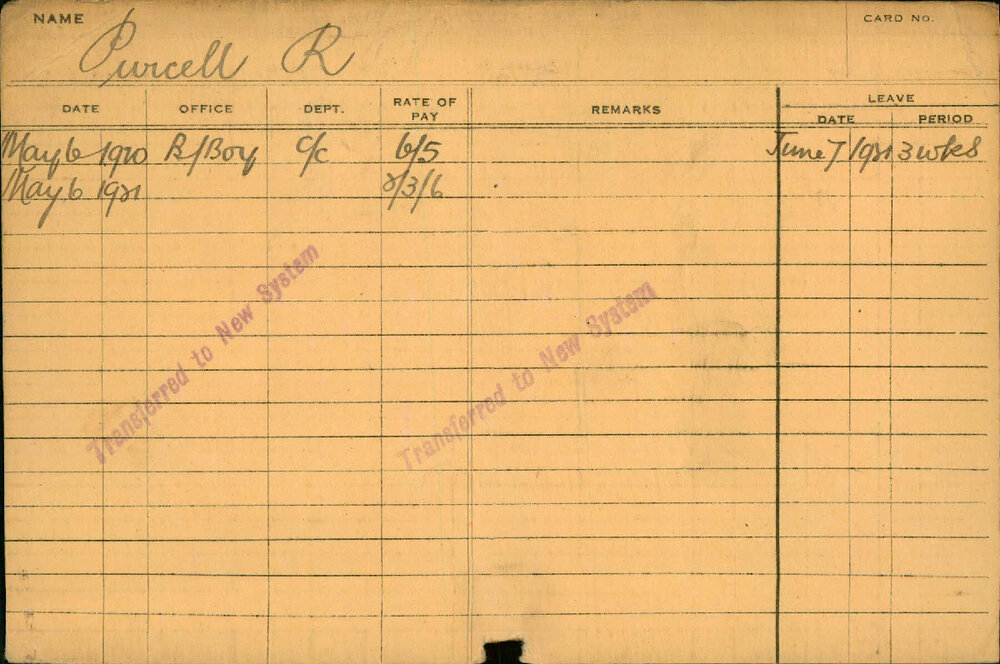 NAME Purcell R CARD NO.
DATE OFFICE DEPT. RATE OF PAY REMARKS LEAVE
DATE PERIOD
May 6 1920 B/Boy C/C 6/5 June 7 1921 3 wks
May 6 1921 /3/6
Transferred to New System
Transferred to New System